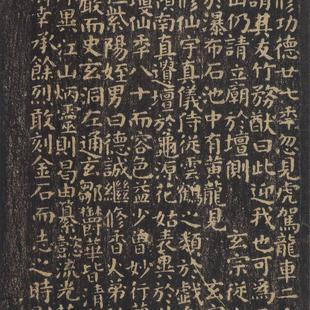 修功德廿七年忽見虎駕龍車二
謂其友竹務猷曰此迎我也可為
山仍請立廟於壇側 玄宗從
於瀑布石池中有黃龍見 玄宗
修仙宇真儀侍從雲鶴之類於戲
嶺南真遺壇於龜源花姑表異於
瓊仙年八十而容色益少曾妙行夢
紫陽姪男曰德誠繼修香火弟
嚴而史玄洞左通玄鄒鬱華皆清
異江山炳靈則曷由纂懿流光
幸承餘烈敢刻金石而志之時